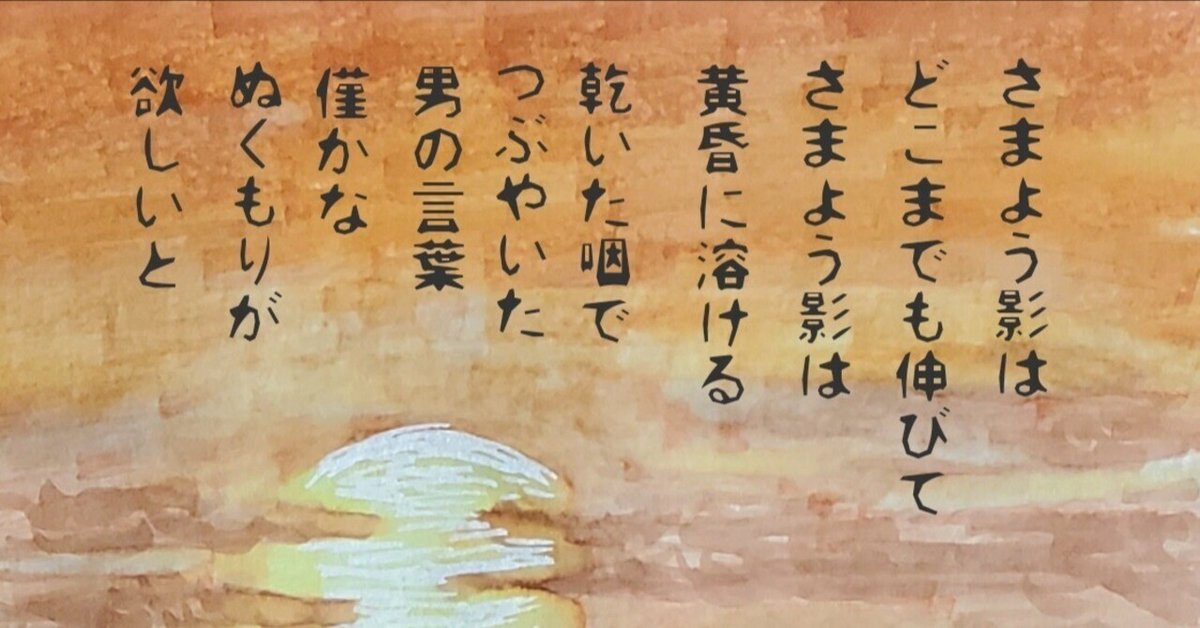 さまよう影は
どこまでも伸びて
さまよう影は
黄昏に溶ける
乾いた咽で
つぶやいた
男の言葉
僅かな
ぬくもりが
欲しいと